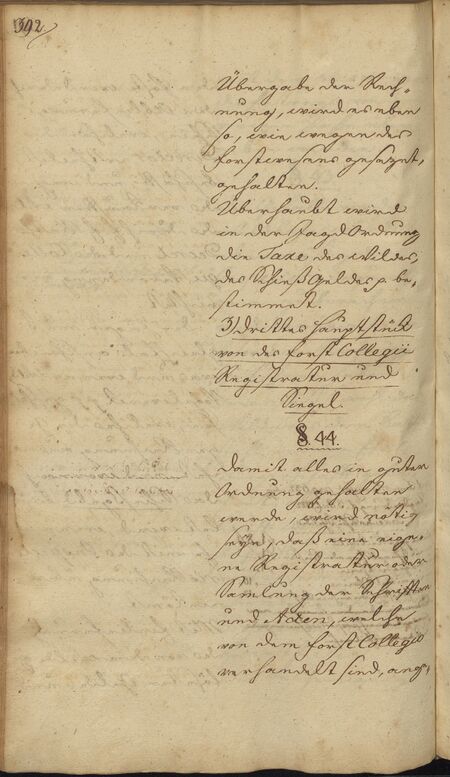 392.
Übergabe der Rech=
nung, wird es eben
so, wie wegen des
Forstwesens gesagt,
gehalten.
Überhaubt wird
in der Jagd Ordnung
die Taxe des Wildes,
des Schieß Geldes p. be,
stimmet.
3) Drittes Hauptstück
von des Forst Collegii
Registratur und
Siegel.
§. 44.
Damit alles in guter
Ordnung gehalten
werde, wird nötig
seyn, daß eine eige,
ne Registratur oder
Samlung der Schrifften
und Acten, welche
von dem Forst Collegio
verhandelt sind, ang,